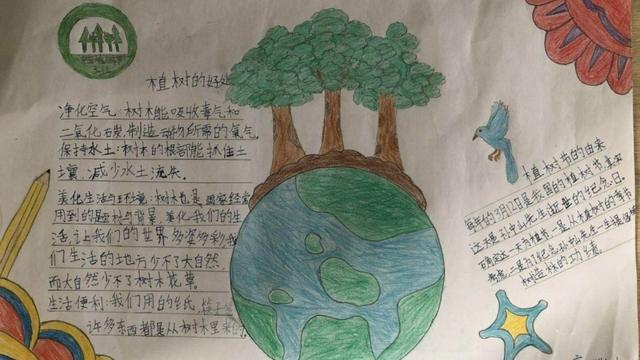 植树的好处
净化空气:树木能吸收毒气和
二氧化碳,制造动物所需的氧气
保持水土:树木的根部能抓住土
壤,减少水土流失.
美化生活与环境:树木也是画家经常
用到的题材与背景,美化我们的生
活,让我们的世界多姿多彩,我
们生活的地方少不了大自然,
而大自然少不了树木花草.
生活便利:我们用的纸,筷子
许多东西都是从树木里来的
植树节的由来
每年的3月12日是我国的植树节其实
这是孙中山先生逝世的纪念日.
一是从植树的季节
二是为了纪念孙中山先生一生提倡
植树造林的功绩.